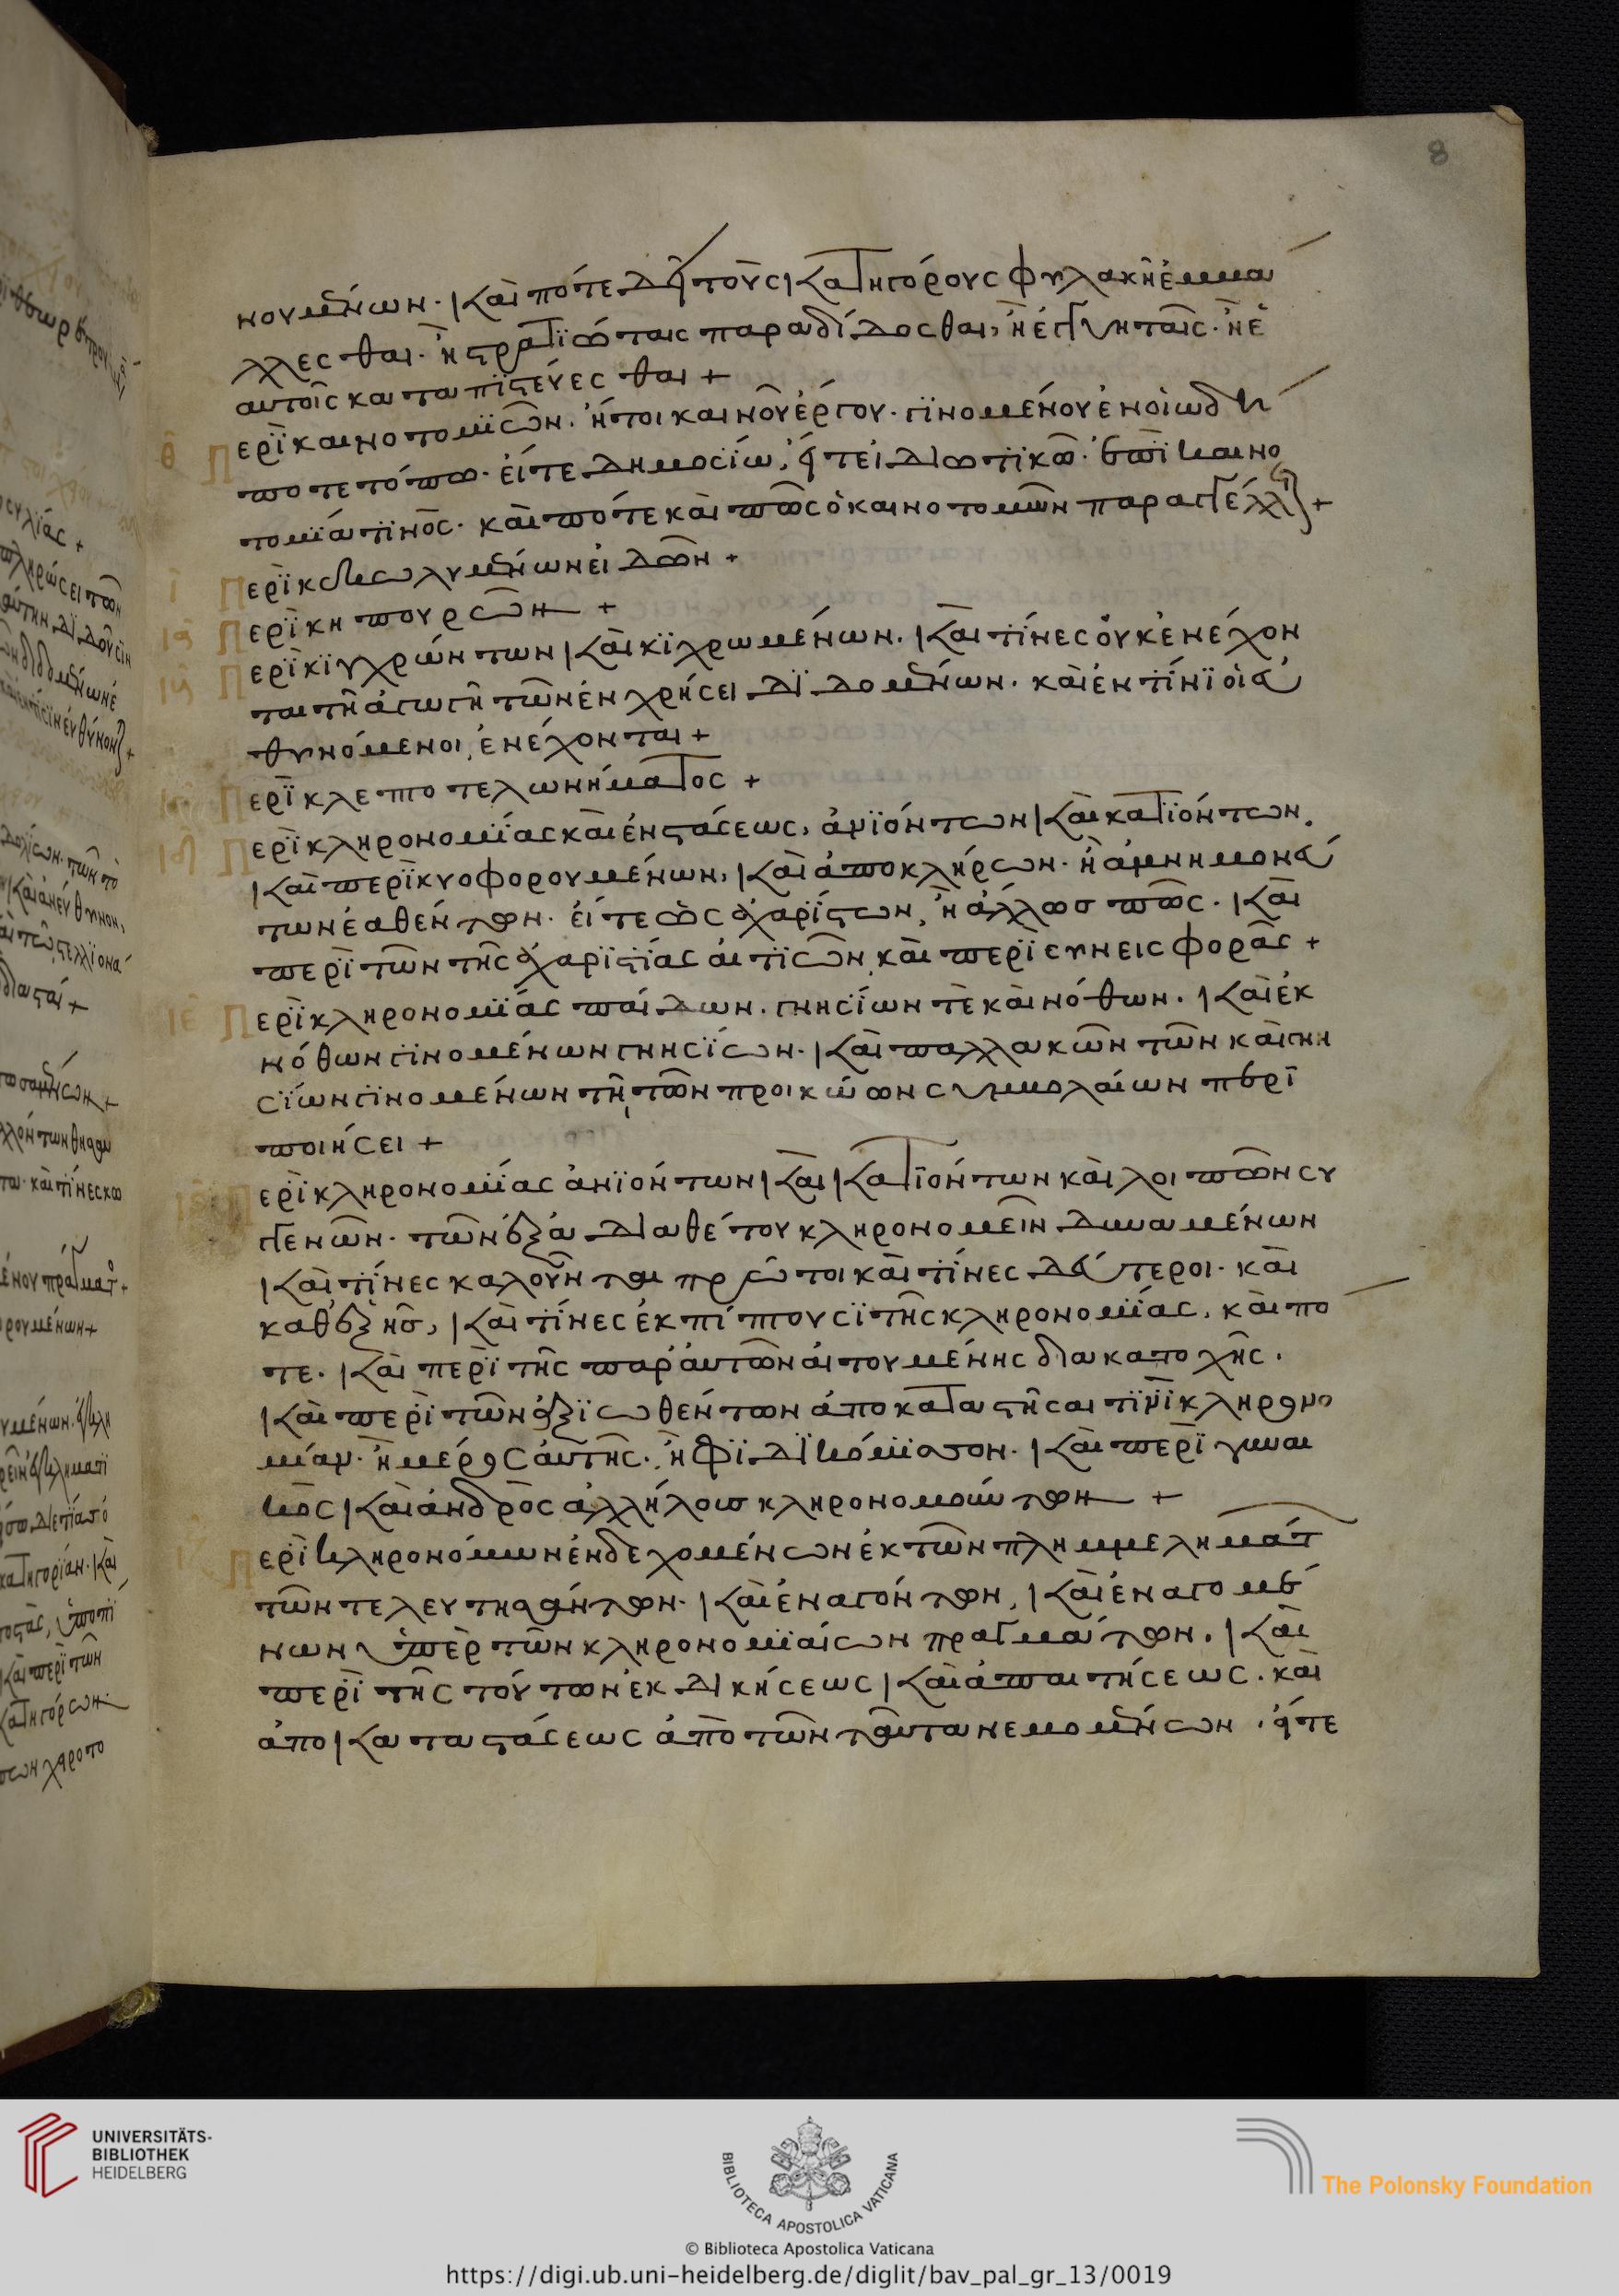 8
νουμένων· καὶ πότε δεῖ τοὺς κατηγόρους φυλακῇ ἐμβά
λλεσθαι· ἢ στρατιώταις παραδίδοσθαι, ἢ ἐγγυηταῖς· ἢ ἑ
αυτοῖς καταπιστεύεσθαι +
θ Περὶ καινοτομιῶν· ἤτοι καινοῦ ἔργου· γινομένου ἐν οἱῳδή
ποτε τόπῳ· εἴτε δημοσίῳ, εἴτε ἰδιωτικῷ· ἐπὶ καινο
τομία τινός· καὶ πότε καὶ πῶς ὁ καινοτομῶν παραγγέλλεται +
ι Περὶ κεκωλυμένων εἰδῶν +
ια Περὶ κηπουρῶν +
ιβ Περὶ κιχρώντων καὶ κιχρωμένων· καὶ τίνες οὐκ ἐνέχον
ται τῇ ἀγωγῇ τῶν ἐν χρήσει διδομένων· καὶ ἐν τίνι οἱ εὐ
θυνόμενοι, ἐνέχονται +
ιγ Περὶ κλεπτοτελωνήματος +
ιδ Περὶ κληρονομίας καὶ ἐνστάσεως, ἀνιόντων καὶ κατιόντων·
καὶ περὶ κυοφορουμένων, καὶ ἀποκλήρων· ἢ ἀμνημονεύ
των ἐαθέντων· εἴτε ὡς ἀχαρίστων, ἢ ἄλλως πως· καὶ
περὶ τῶν τῆς ἀχαριστίας αἰτιῶν, καὶ περὶ συνεισφορᾶς +
ιε Περὶ κληρονομίας παίδων· γνησίων τε καὶ νόθων· καὶ ἐκ
νόθων γινομένων γνησίων· καὶ παλλακῶν τῶν καὶ γνη
σίων γινομένων τῇ τῶν προικώων συμβολαίων περι
ποιήσει +
ιϛ Περὶ κληρονομίας ἀνιόντων καὶ κατιόντων καὶ λοιπῶν συ
γγενῶν· τῶν ἐξ ἀδιαθέτου κληρονομεῖν δυναμένων
καὶ τίνες καλοῦνται πρῶτοι καὶ τίνες δεύτεροι· καὶ
καθεξῆς, καὶ τίνες ἐκπίπτουσι τῆς κληρονομίας, καὶ πο
τε· καὶ περὶ τῆς παρ' αὐτῶν αἰτουμένης διακατοχῆς·
καὶ περὶ τῶν ἀξιωθέντων ἀποκαταστῆσαι τινὶ κληρονο
μίαν· ἢ μέρος αὐτῆς· ἢ φιδικόμισσον· καὶ περὶ γυναι
κὸς καὶ ἀνδρὸς ἀλλήλους κληρονομούντων +
ιζ Περὶ κληρονόμων ἐνδεχομένων ἐκ τῶν πλημμελημάτ
τῶν τελευτησάντων· καὶ ἐναγόντων, καὶ ἐναγομέ
νων ὑπὲρ τῶν κληρονομιαίων πραγμάτων· καὶ
περὶ τῆς τούτων ἐκδικήσεως καὶ ἀπαιτήσεως· καὶ
ἀποκαταστάσεως ἀπὸ τῶν ταῦτα νεμομένων· εἴτε
UNIVERSITÄTS-
BIBLIOTHEK
HEIDELBERG
BIBLIOTECA APOSTOLICA VATICANA
The Polonsky Foundation
© Biblioteca Apostolica Vaticana
https://digi.ub.uni-heidelberg.de/diglit/bav_pal_gr_13/0019